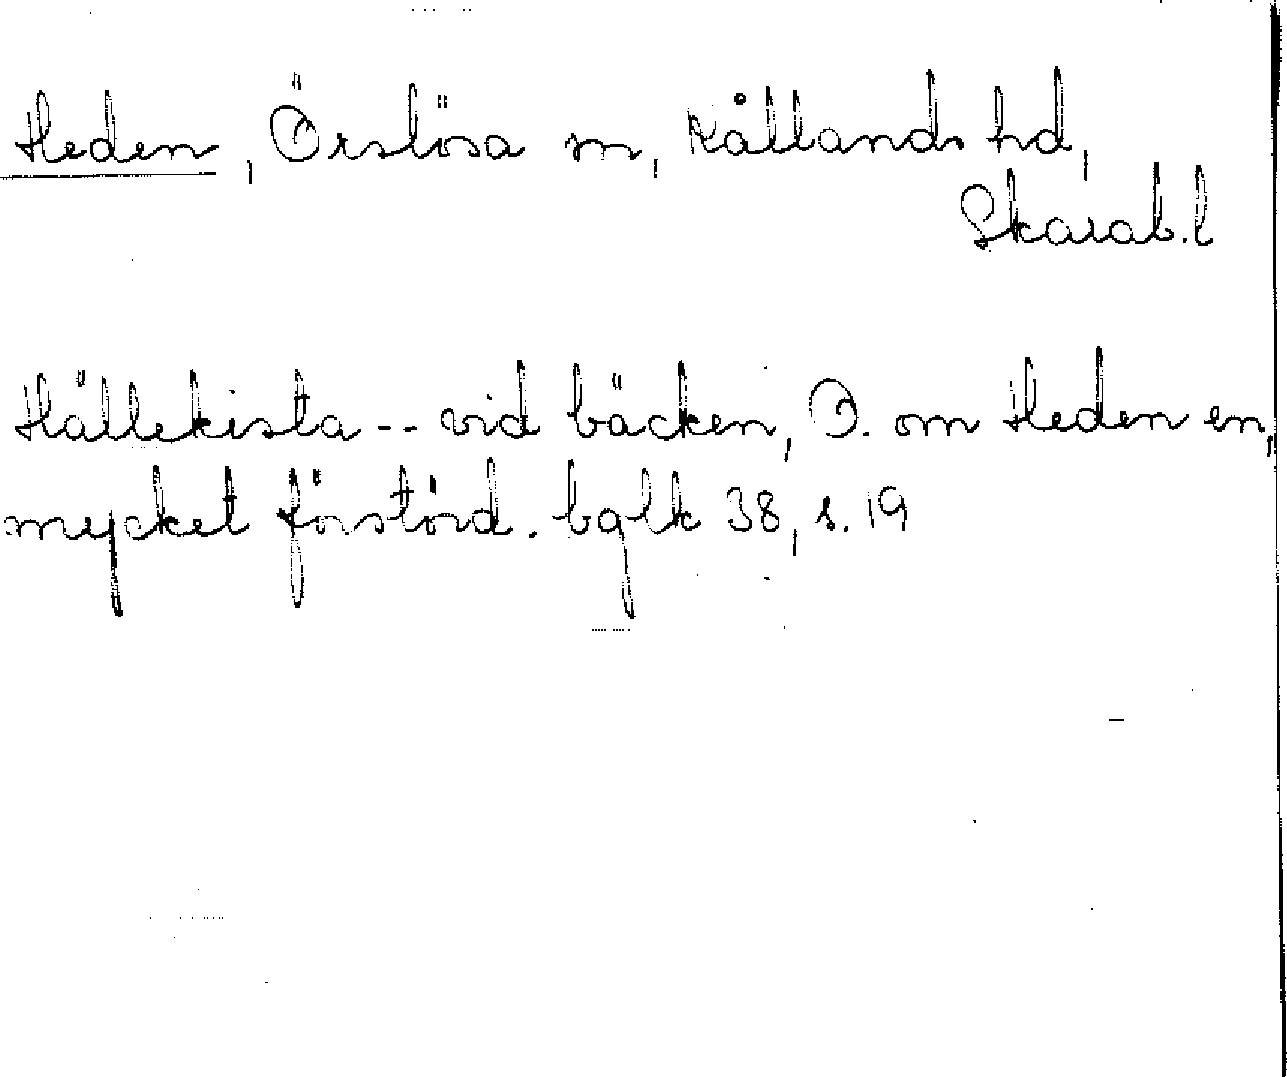 Heden, Örslösa sn, Kållands hd,
Skarab.l
Hällekista -- vid bäcken, O. om Heden en,
mycket förstörd. bglk 38, s. 19